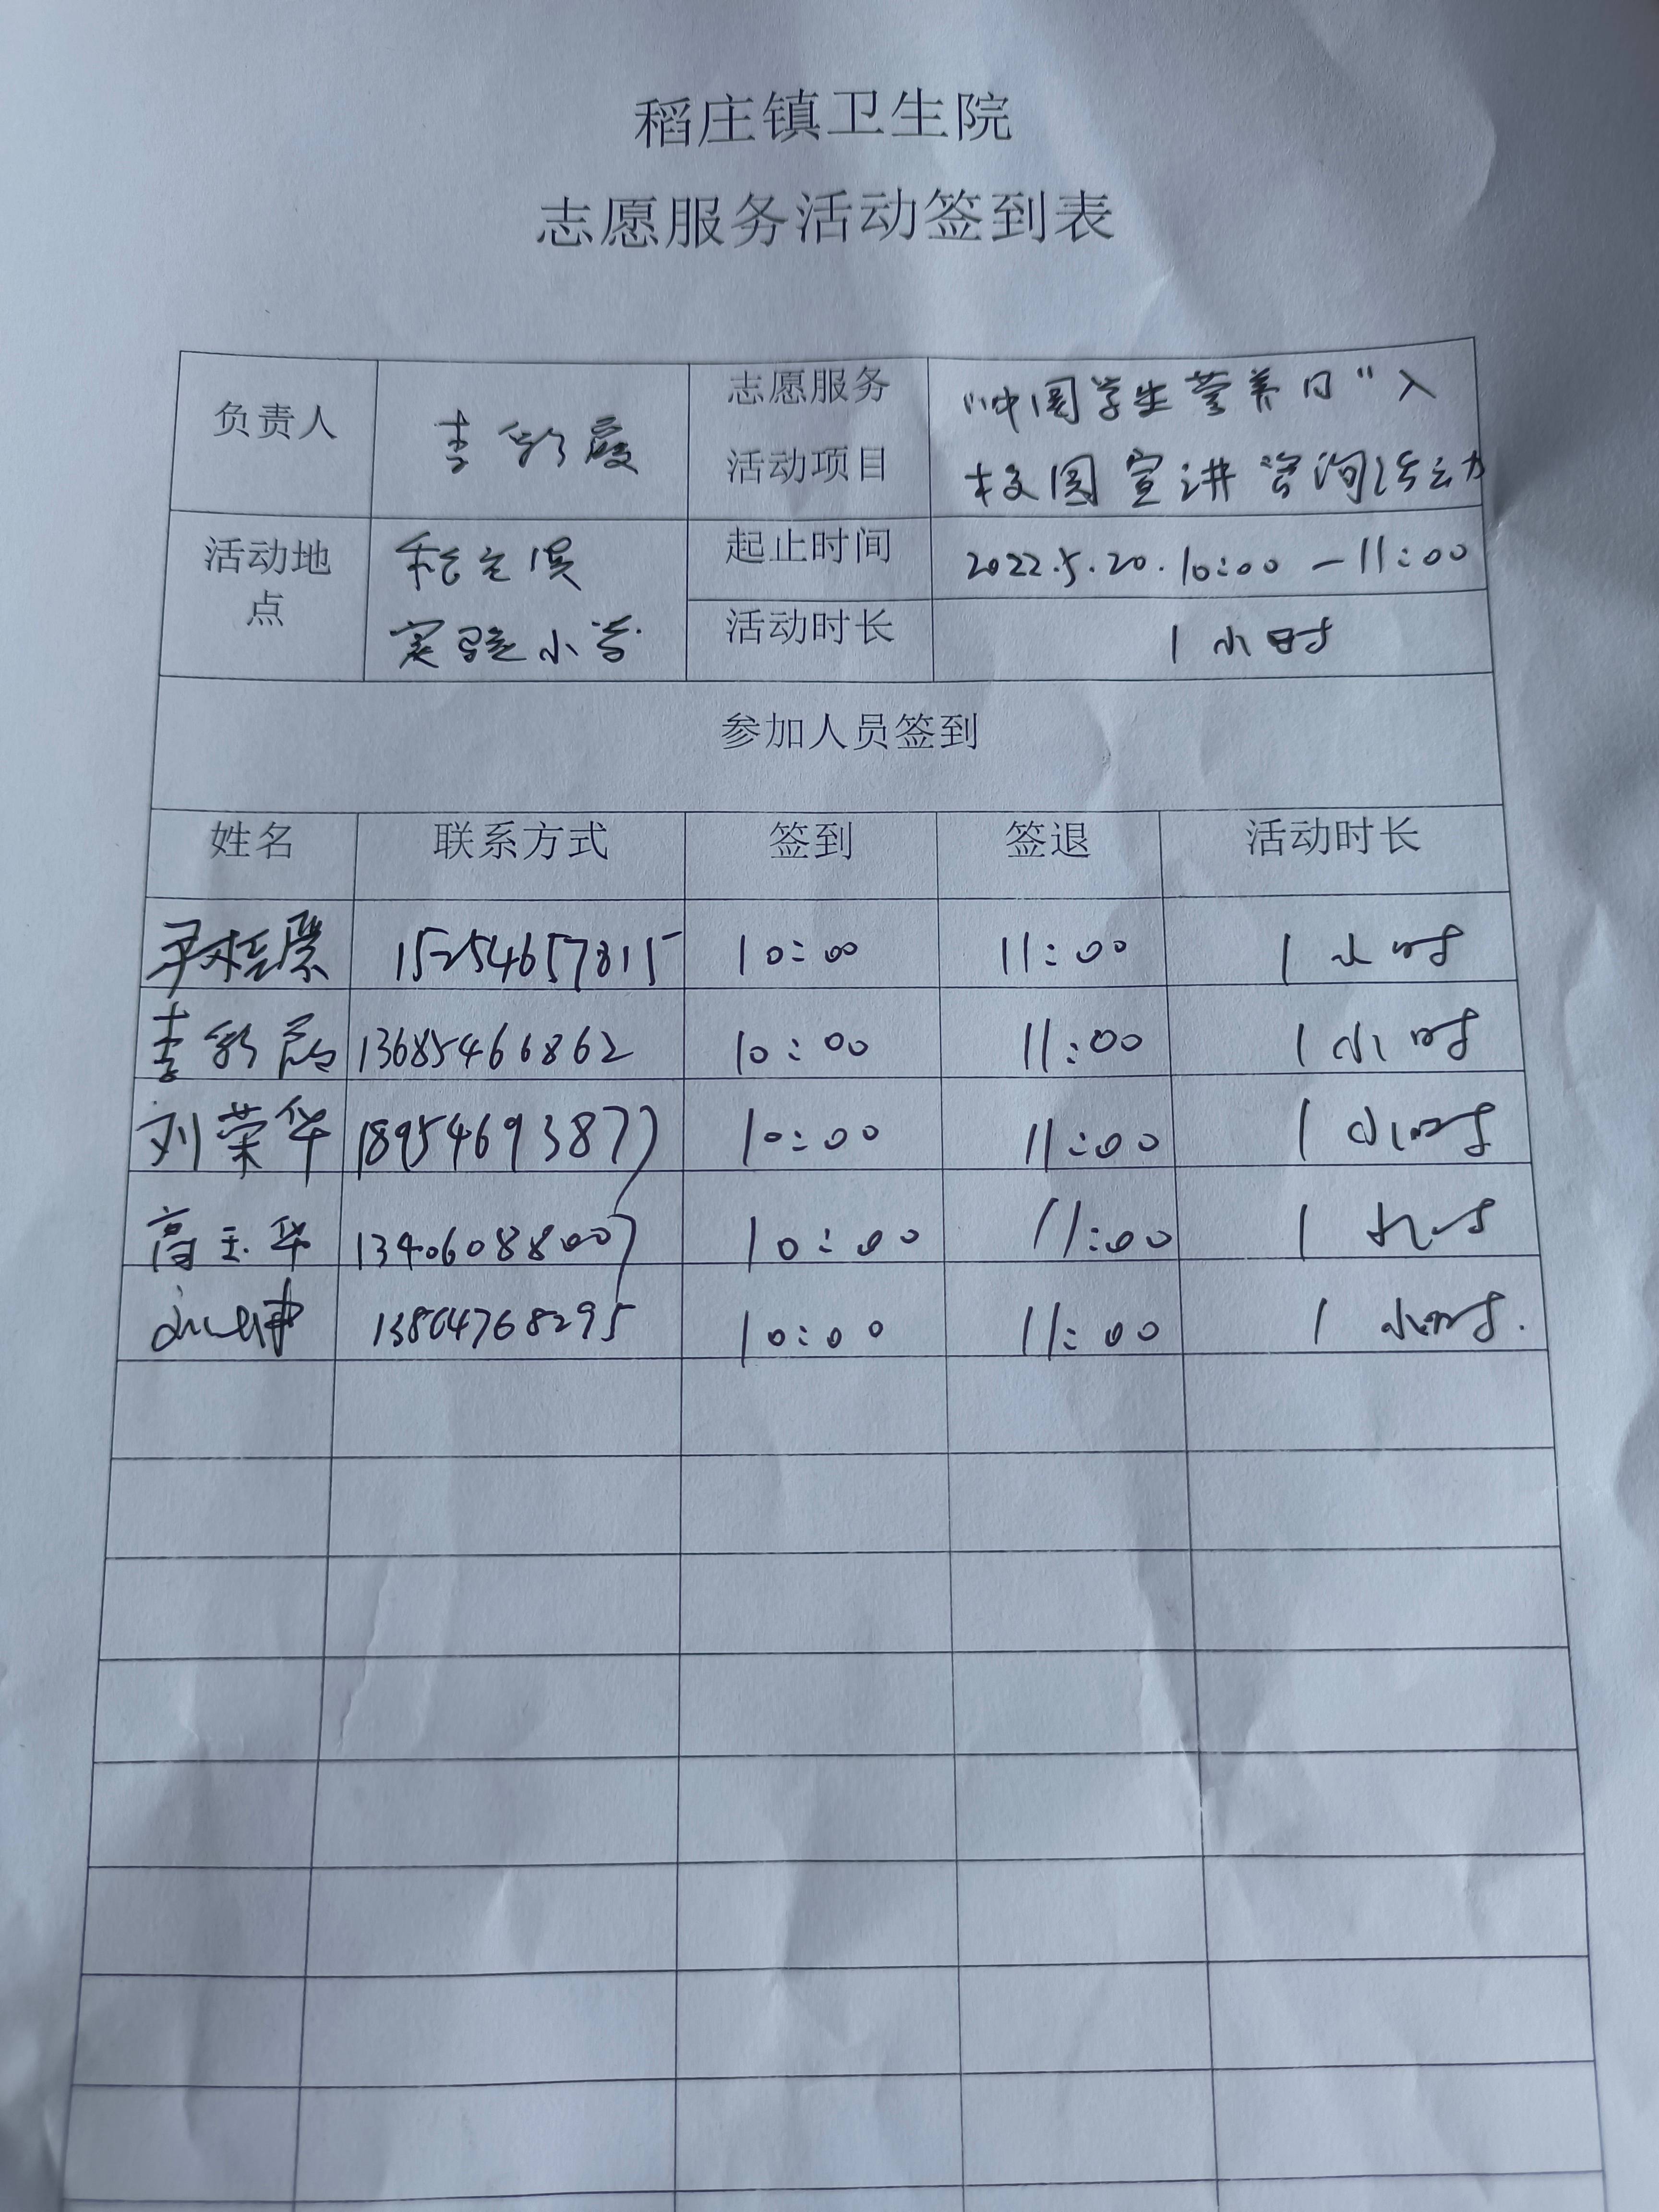 稻庄镇卫生院
志愿服务活动签到表
负责人 李彩霞 志愿服务活动项目 "中国学生营养日"入
校园宣讲咨询活动
活动地点 稻庄镇 起止时间 2022.5.20.10:00-11:00
实验小学 活动时长 1小时
参加人员签到
姓名 联系方式 签到 签退 活动时长
15254657815 10:00 11:00 1小时
李彩霞 13685466862 10:00 11:00 1小时
刘荣华 18954693877 10:00 11:00 1小时
高玉华 13406088007 10:00 11:00 1小时
13864768295 10:00 11:00 1小时.